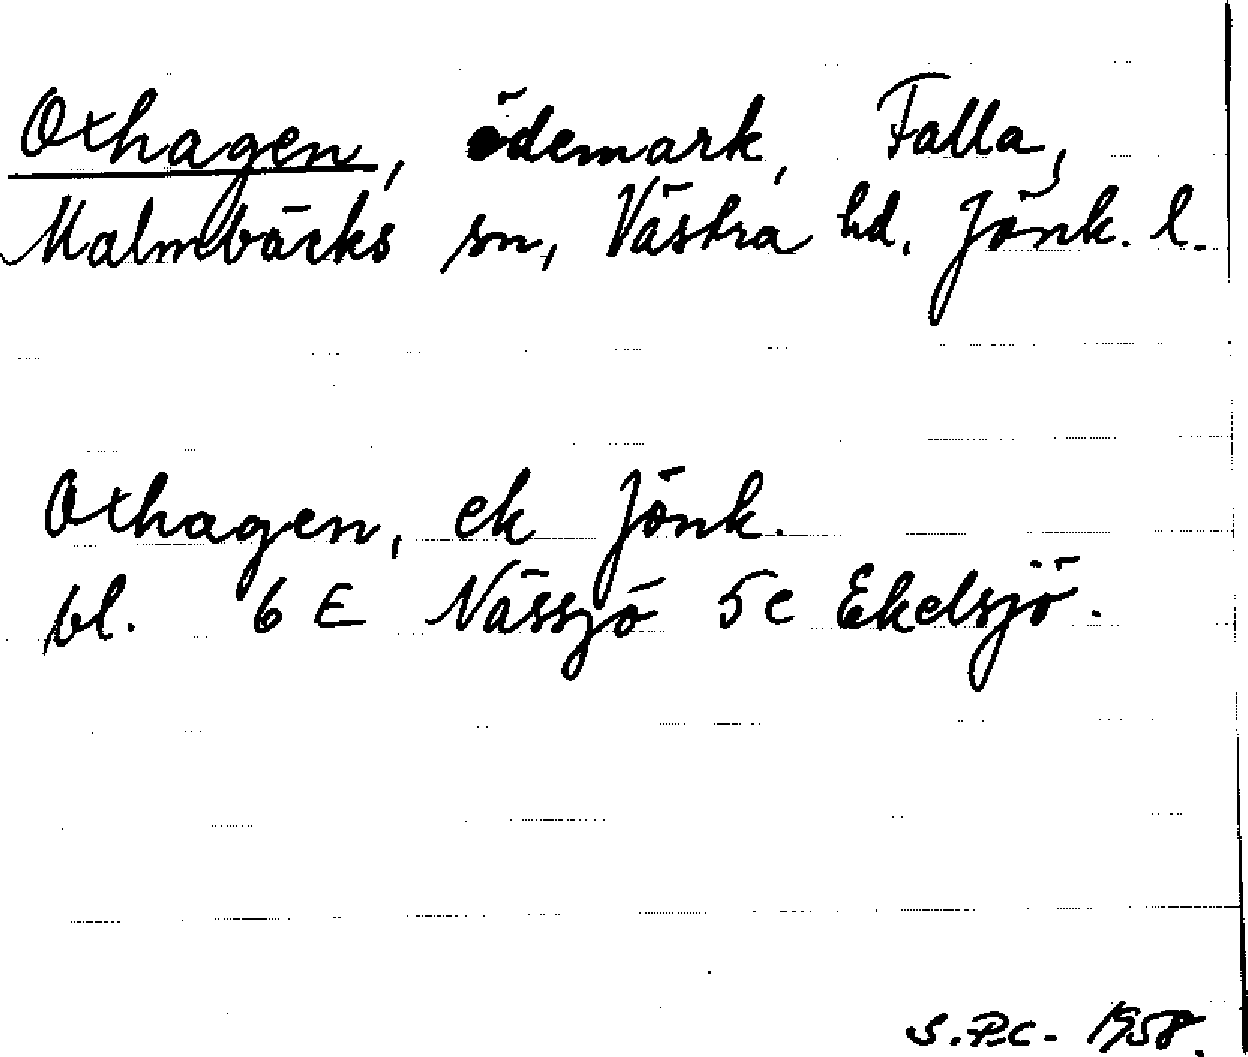 Oxhagen, ödemark, Falla,
Malmbäcks sn, Västra hd. Jönk. l.
Oxhagen, ek Jönk.
bl. 6 E Nässjö 5 c Ekelsjö.
S.P.C. 1958.